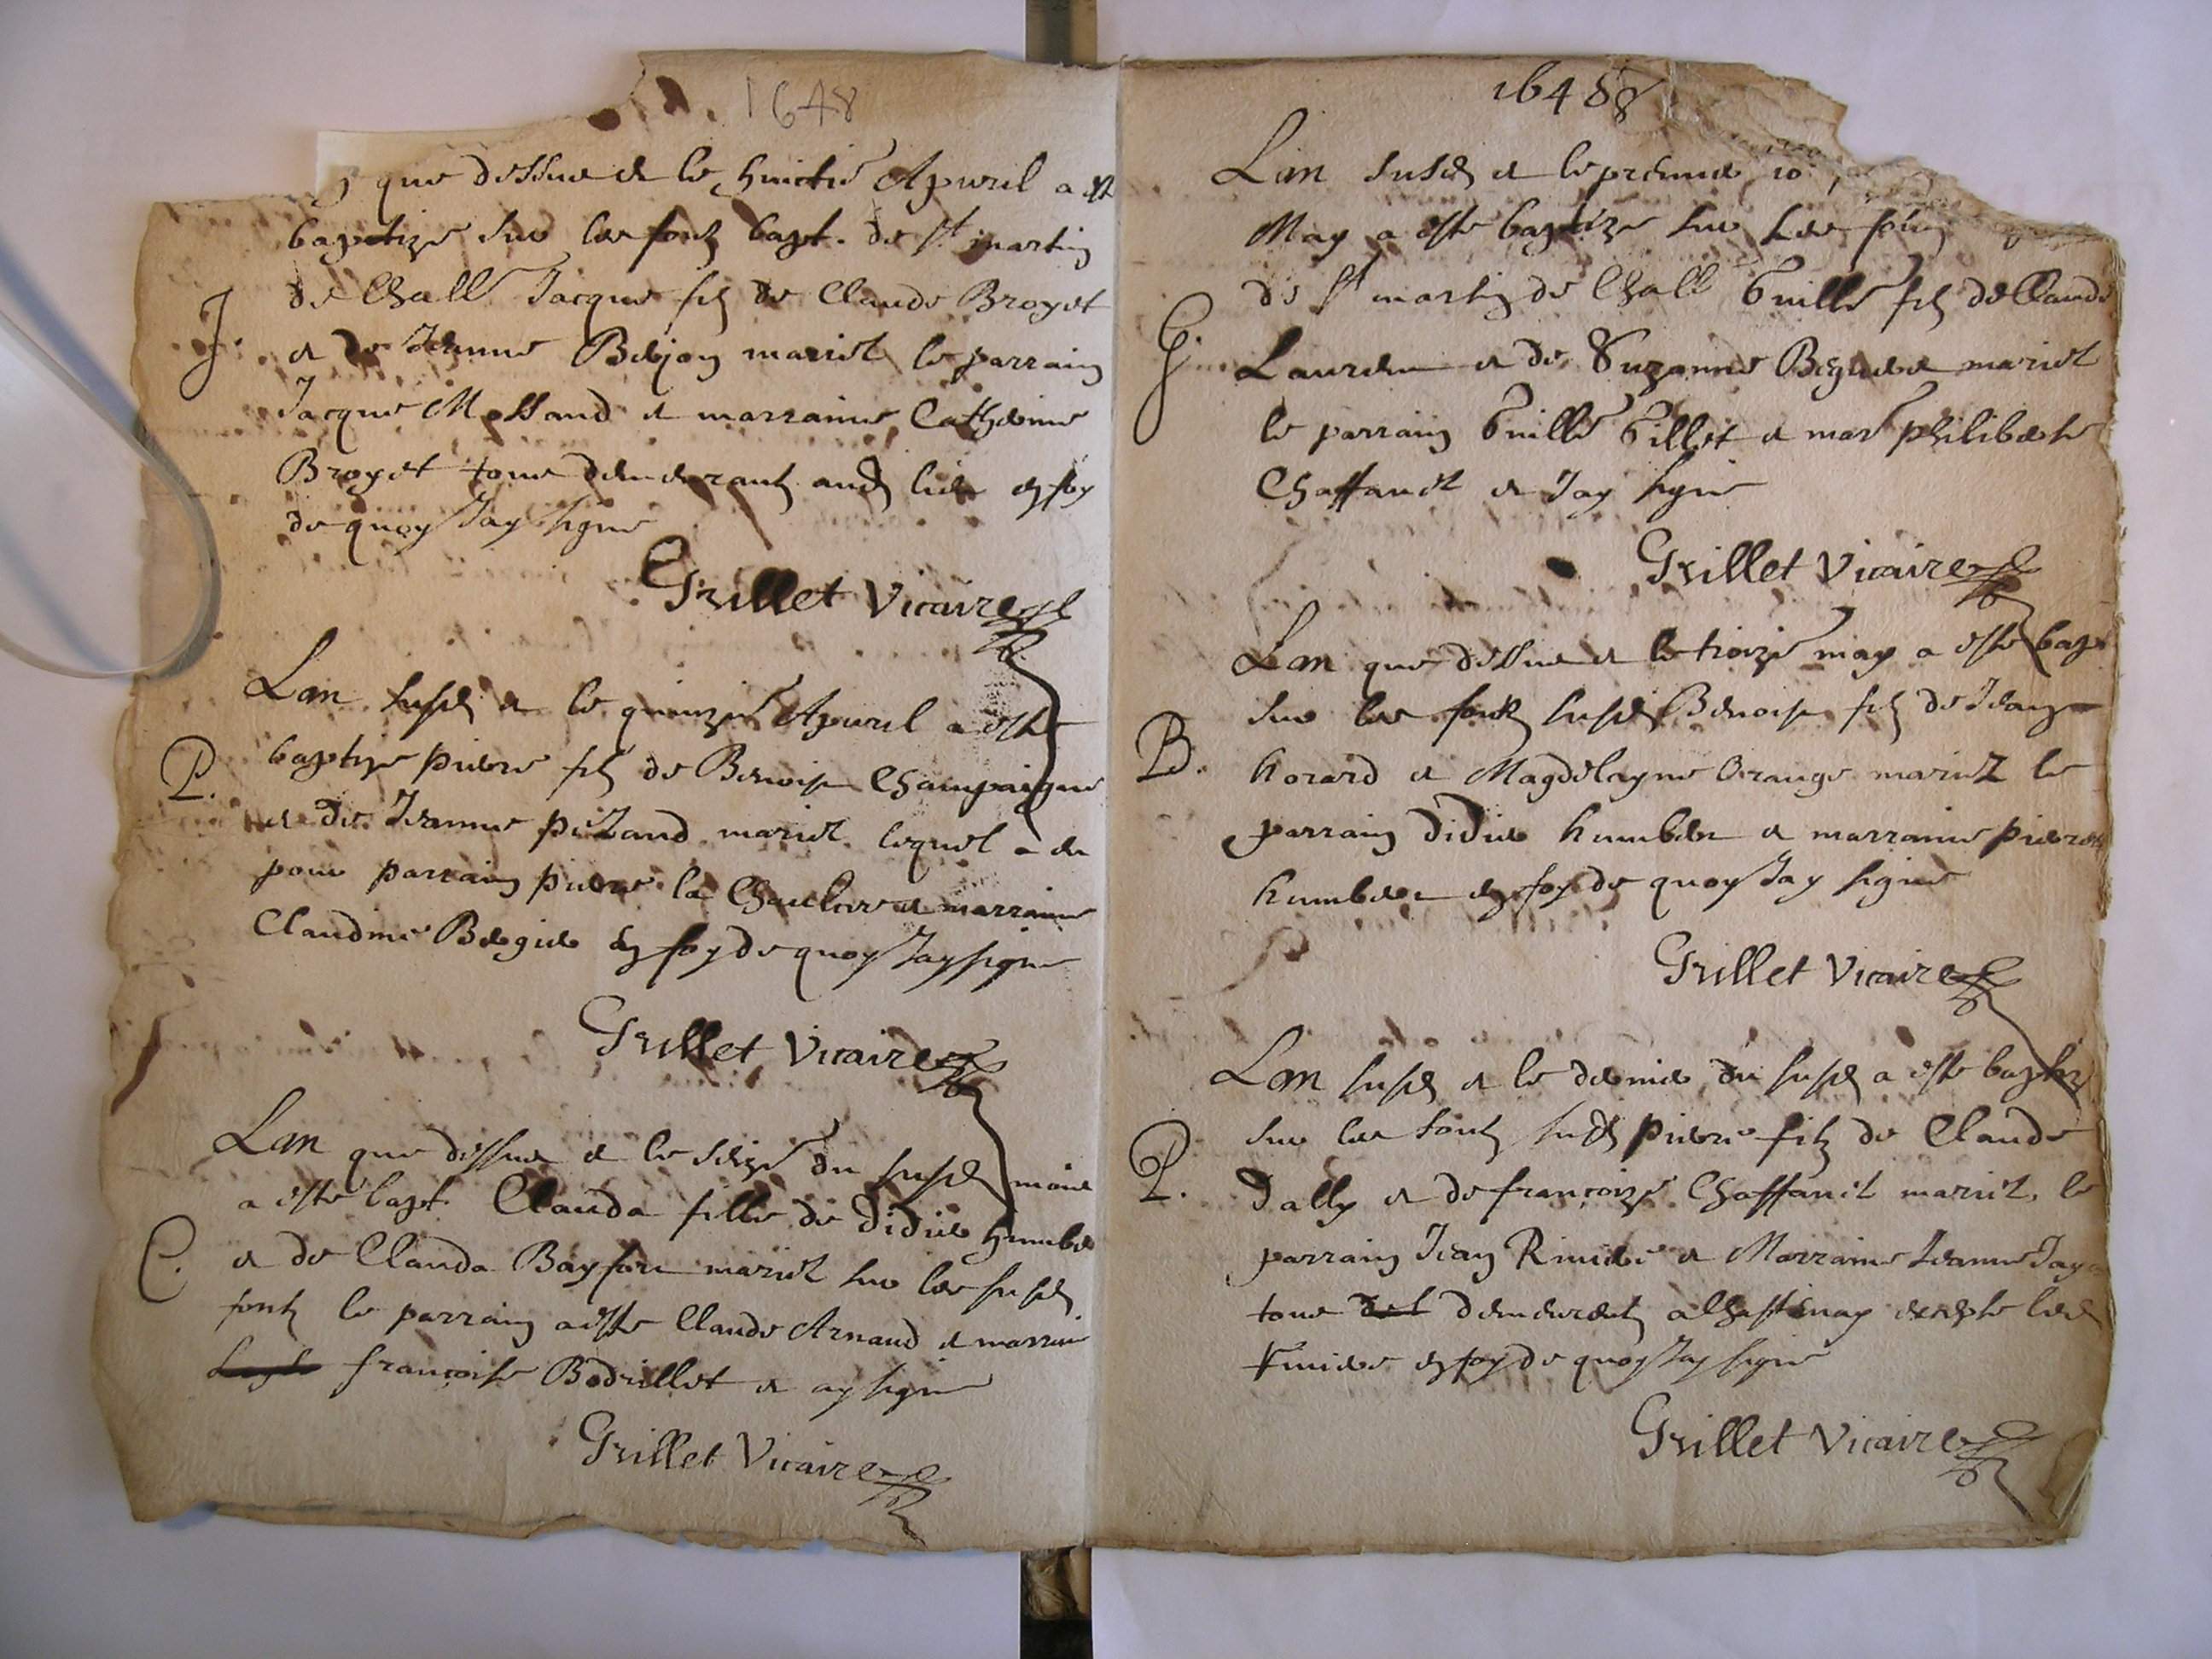 1648
que dessus et le huictie Apvril a este
baptize sur les fontz bapt. de st martin
J. de Chall Jacque filz de Claude Broyet
et de Jeanne Bejon mariet le parrain
Jacque Mossand et marraine Catherine
Broyet tous demeurantz aud lieu en foy
de quoy Jay signe
Grillet Vicaire
Lan susd et le quinzie Apvril a este
P. baptize pierre filz de Benoist Champaigne
et de Jeanne mariet lequel a eu
pour parrain pierre la et marraine
Claudine Bergier en foy de quoy Jay signe
Grillet Vicaire
Lan que dessus et le seizie du susd mois
a este bapt. Clauda fille de Didier humber
C. et de Clauda mariet sur les susd
fontz le parrain a este Claude Arnaud et marraine
francoise Bodrillet et ay signe
Grillet Vicaire
1648
Lan susd et le premier
May a este baptize sur les fontz
de st martin de Chall Guille filz de Claude
G. Laurent et de Suzanne mariet
le parrain Guille Gillet et mar philiberte
Chaffanict et Jay signe
Grillet Vicaire
Lan que dessus et le troizie may a este bapt
sur les fontz susd Benoist filz de Jean
B. horard et Magdelayne Orange mariet le
parrain Didier humber et marraine pierrette
humber en foy de quoy Jay signe
Grillet Vicaire
Lan susd et le dernier du susd a este baptize
sur les fontz susd pierre filz de Claude
P. Dally et de francoize Chaffanit mariet. le
parrain Jean Rivier et Marraine Jeanne
tous demeurantz a Chastenay excepte led
Rivier en foy de quoy Jay signe
Grillet Vicaire